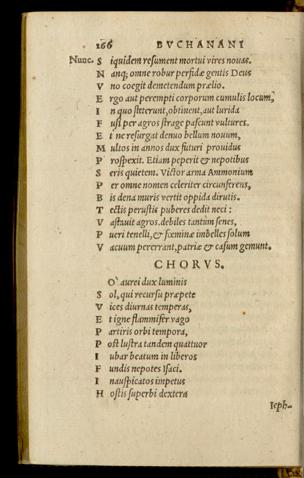 166 BVCHANANI
Nunc. S iquidem resument mortui vires nouas.
N anq; omne robur perfidæ gentis Deus
V no coegit demetendum prælio.
E rgo aut perempti corporum cumulis locum,
I n quo steterunt, obtinent, aut lurida
F usi per agros strage pascunt vultures.
E t ne resurgat denuo bellum nouum,
M ultos in annos dux futuri prouidus
P rospexit. Etiam peperit & nepotibus
S eris quietem. Victor arma Ammonium
P er omne nomen celeriter circunferens,
B is dena muris vertit oppida dirutis.
T ectis perustis puberes dedit neci:
V astauit agros. debiles tantùm senes,
P ueri tenelli, & fœminæ imbelles solum
V acuum pererrant, patriæ & casum gemunt.
CHORVS.
O aurei dux luminis
S ol, qui recursu præpete
V ices diurnas temperas,
E t igne flammifer vago
P artiris orbi tempora,
P ost lustra tandem quattuor
I ubar beatum in liberos
F undis nepotes Isaci.
I nauspicatos impetus
H ostis superbi dextera
Ieph-